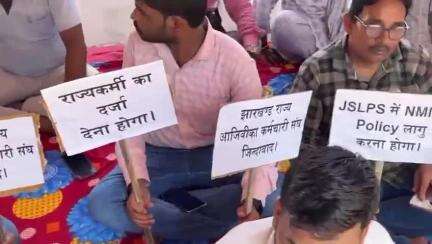 राज्यकर्मी का
दर्जा
देना होगा।
झारखण्ड राज्य
आजिवीका कर्मचारी संघ
जिन्दाबाद।
JSLPS में NM
Policy लागु
करना होगा।
राज्य
चारी संघ